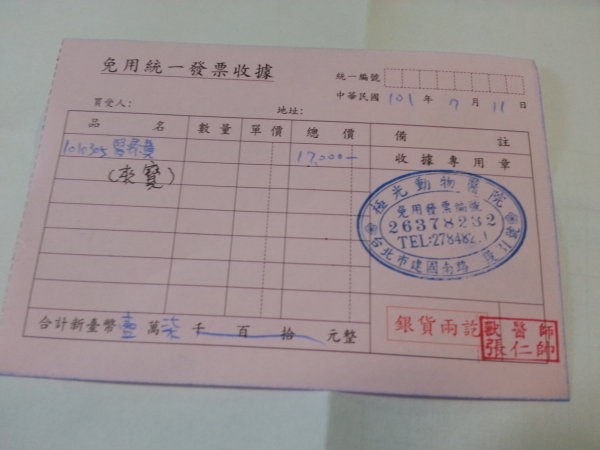 免用統一發票收據
統一編號
中華民國 101 年 7 月 11 日
買受人: 地址:
品 名 數量 單價 總 價 備 註
1010305 醫療費 17,000- 收據專用章
(來寶)
極光動物醫院
免用發票編號
26378232
TEL:278482
台北市建國南路
合計新臺幣 壹 萬 柒 千 百 拾 元整
銀貨兩訖
獸醫師
張仁帥